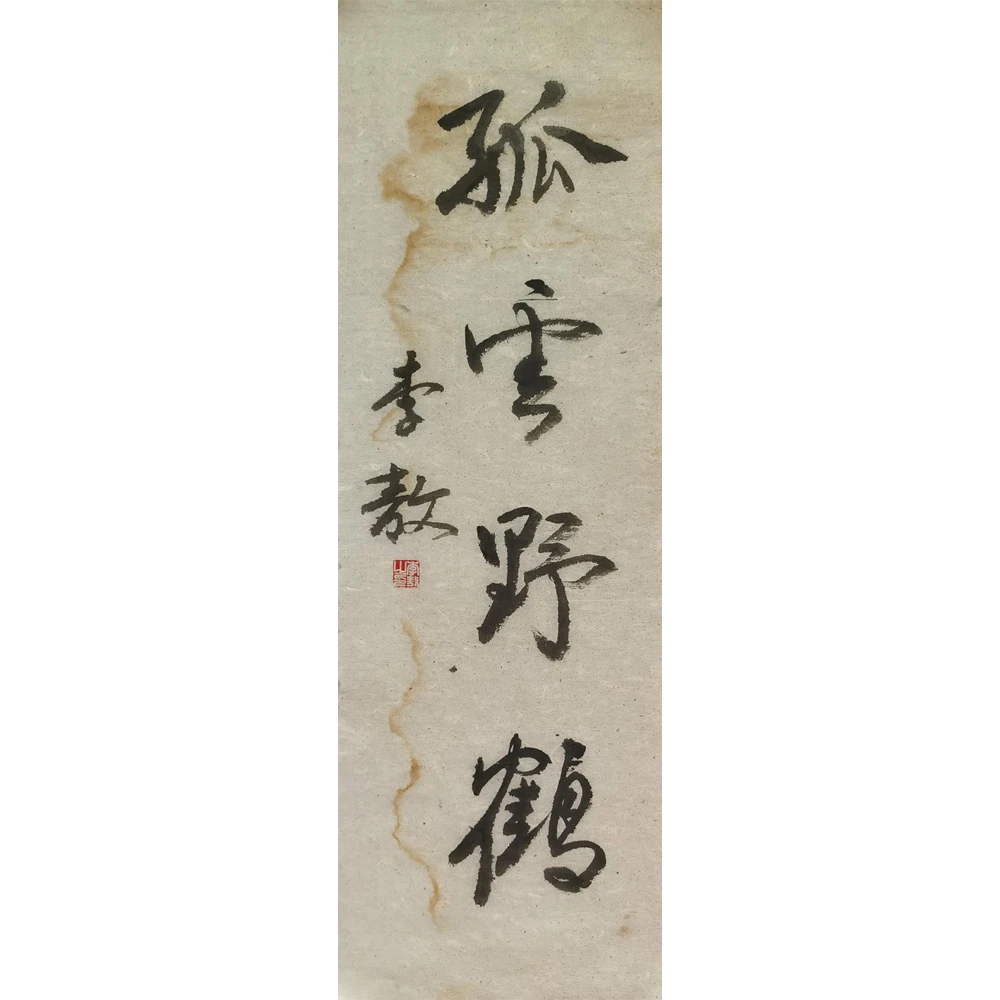 孤雲野鶴
李敖